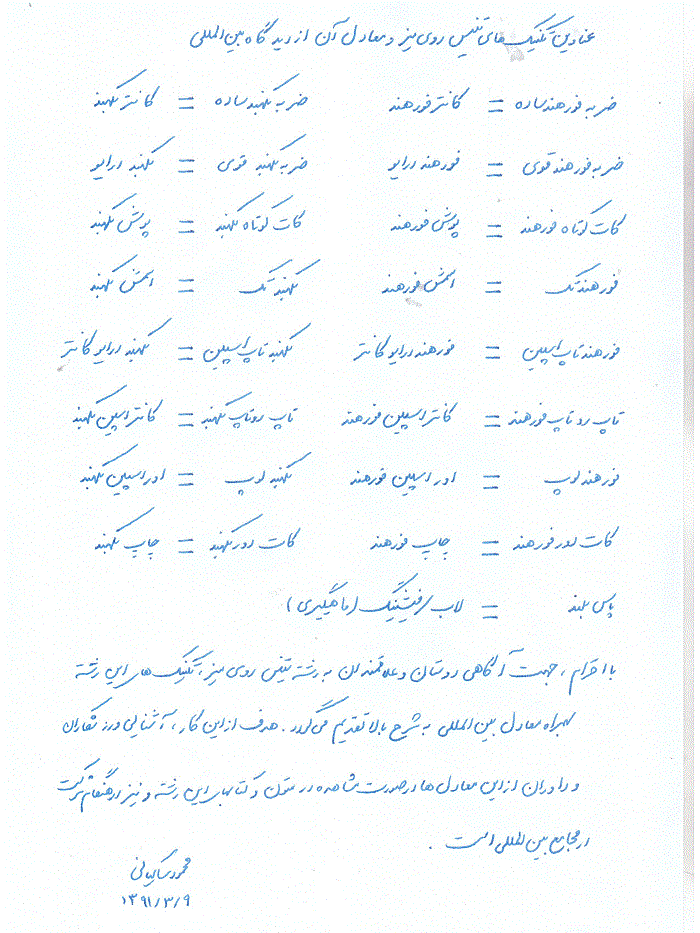 عناوین تکنیک های تنیس روی میز و معادل آن از دیدگاه بین المللی
ضربه فورهند ساده = کانتر فورهند ضربه بکهند ساده = کانتر بکهند
ضربه فورهند قوی = فورهند درایو ضربه بکهند قوی = بکهند درایو
کات کوتاه فورهند = پوش فورهند کات کوتاه بکهند = پوش بکهند
فورهند تک = اسمش فورهند بکهند تک = اسمش بکهند
فورهند تاپ اسپین = فورهند درایو کانتر بکهند تاپ اسپین = بکهند درایو کانتر
تاپ رو تاپ فورهند = کانتر اسپین فورهند تاپ رو تاپ بکهند = کانتر اسپین بکهند
فورهند لوپ = اور اسپین فورهند بکهند لوپ = اور اسپین بکهند
کات دور فورهند = چاپ فورهند کات دور بکهند = چاپ بکهند
پاس بلند = لاب / فیشینگ (ماهیگیری)
با احترام ، جهت آگاهی دوستان و علاقمندان به رشته تنیس روی میز ، تکنیک های این رشته
بهمراه معادل بین المللی به شرح بالا تقدیم می گردد . هدف از این کار ، آشنایی ورزشکاران
و داوران از این معادل ها در صورت مشاهده در متون و کتابهای این رشته و نیز در هنگام شرکت
در مجامع بین المللی است .
محمود
۱۳۹۱/۳/۹